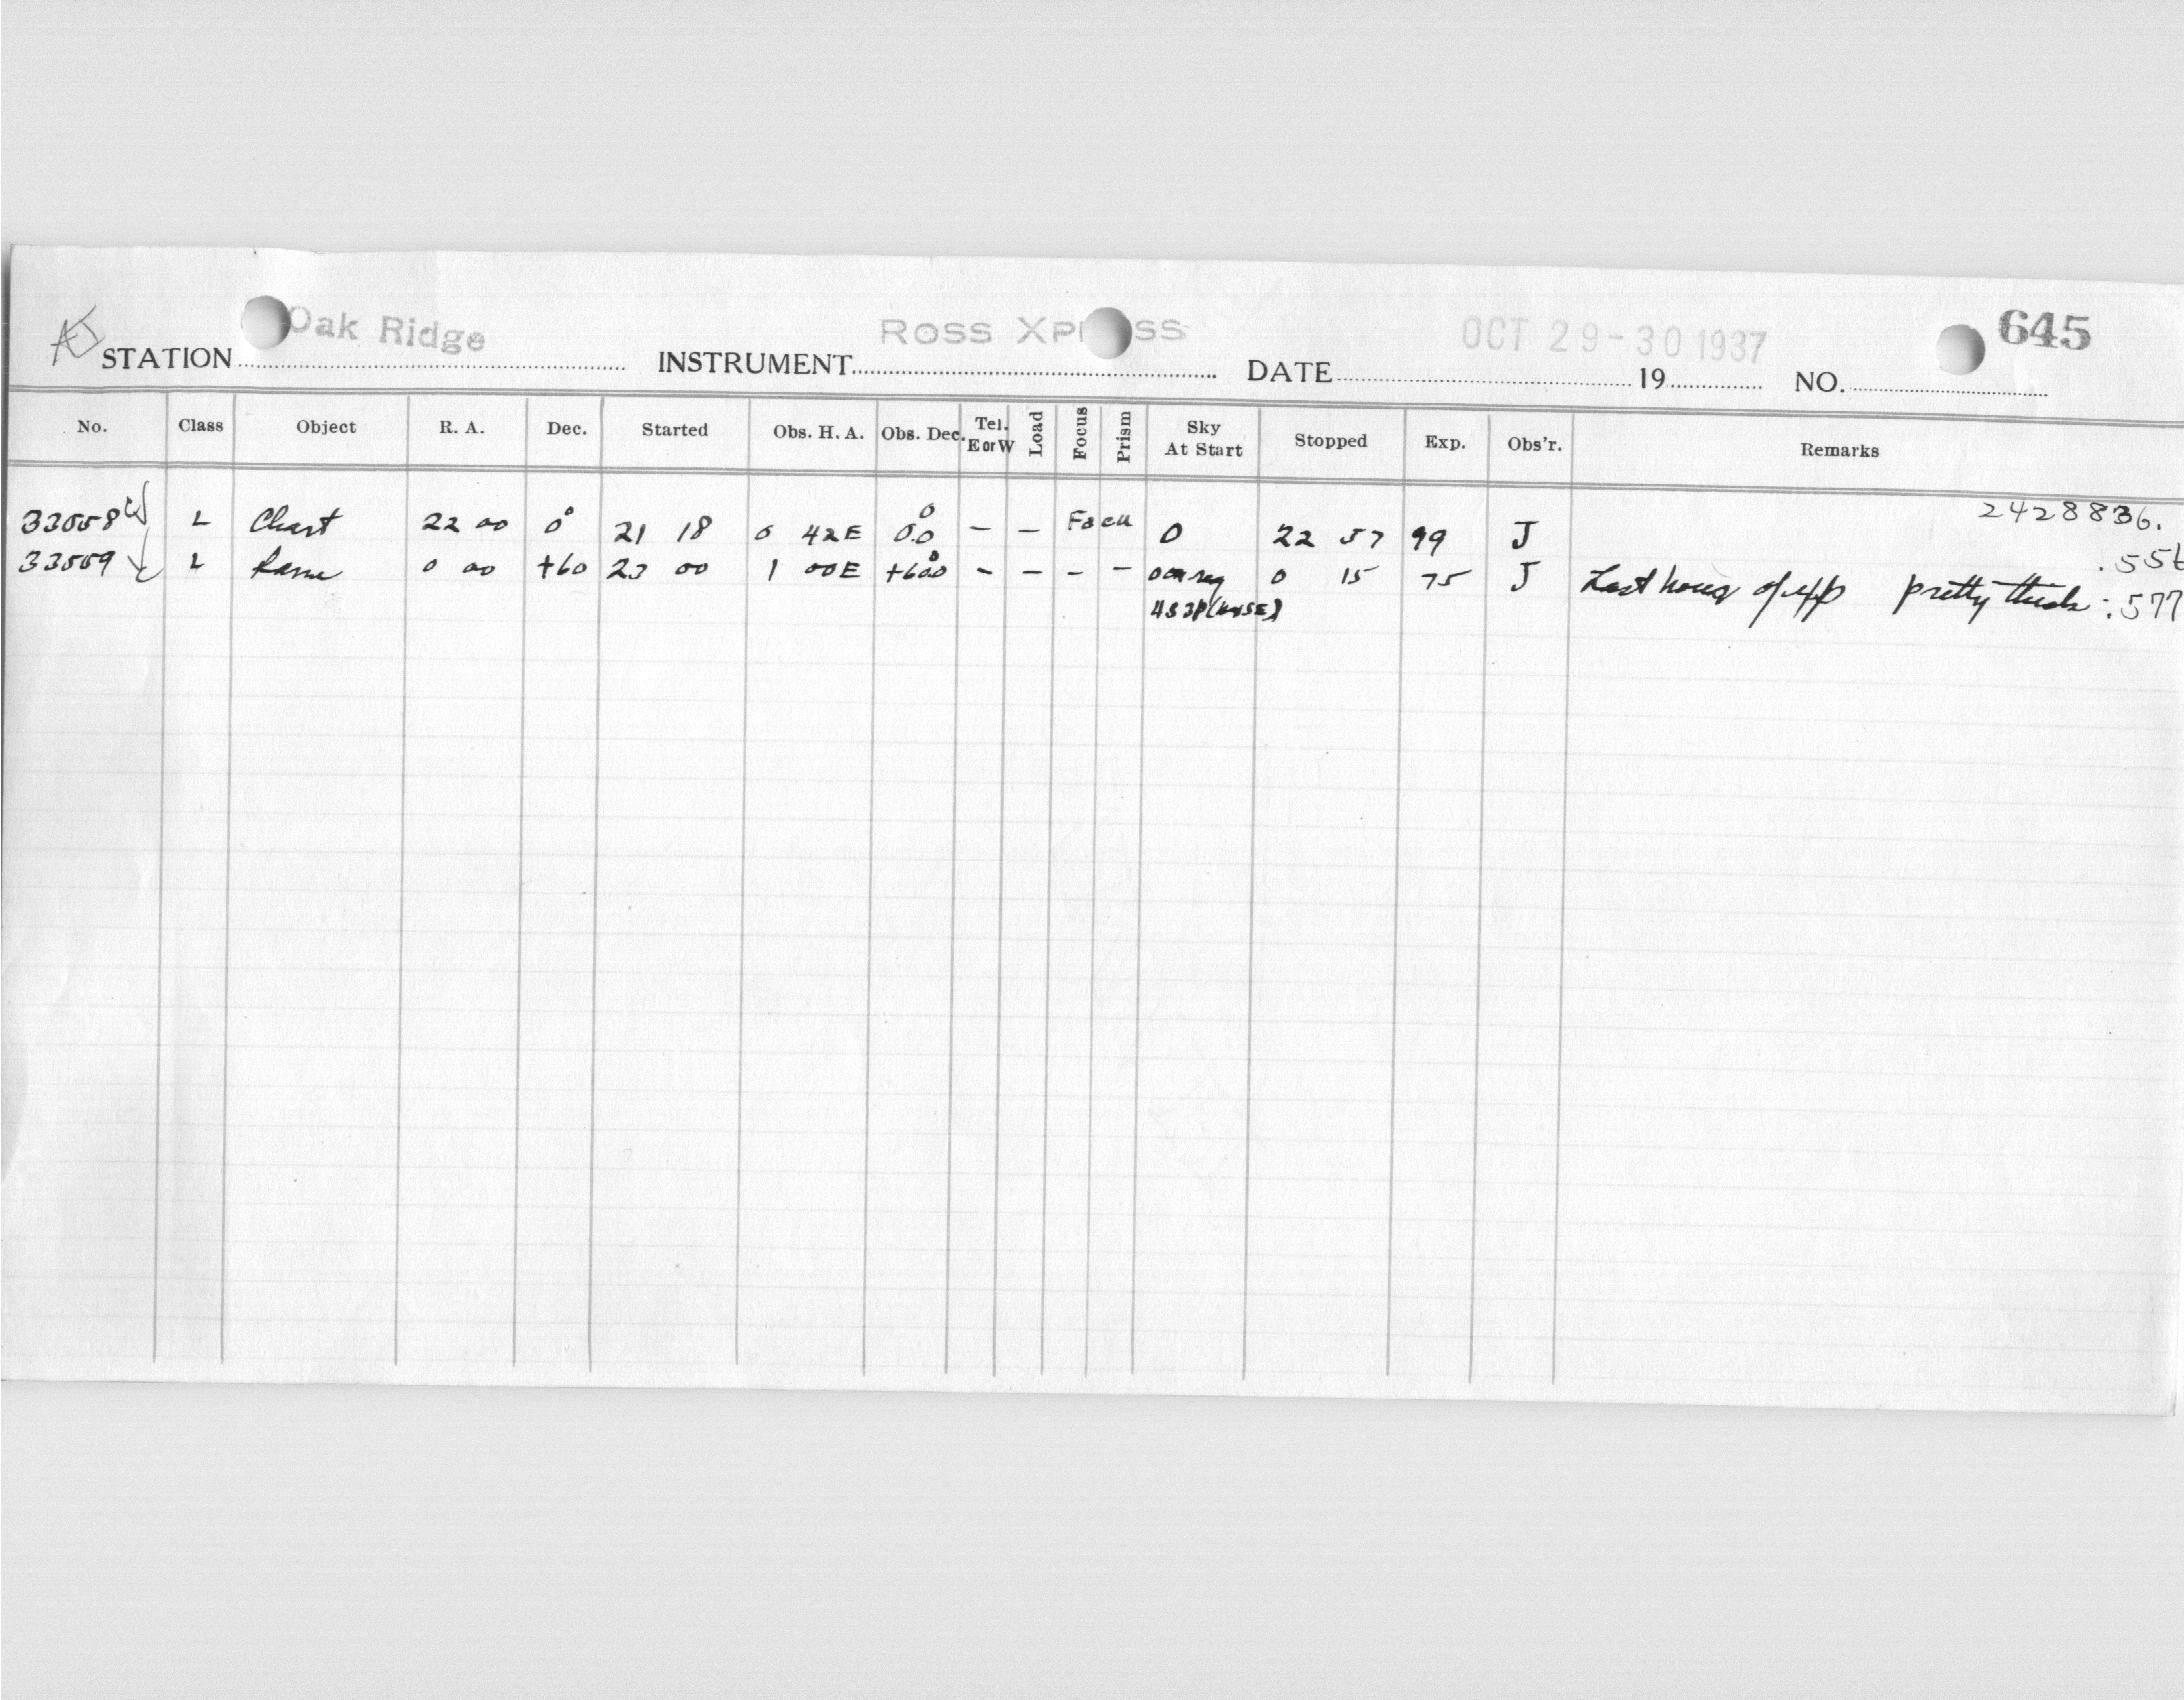 AJ STATION Oak Ridge INSTRUMENT ROSS XPRESS DATE OCT 29-30 1937 19 NO. 645
No. Class Object R. A. Dec. Started Obs. H. A. Obs. Dec. Tel. E or W Load Focus Prism Sky At Start Stopped Exp. Obs'r. Remarks
2428836.
33558 L Chart 22 00 0° 21 18 0 42E 0.0 — — 0 22 57 99 J .556
33559 L 0 00 +60 23 00 1 00E +60.0 - - - - 0 15 75 J Last hour of exp pretty thick .577
4S3P